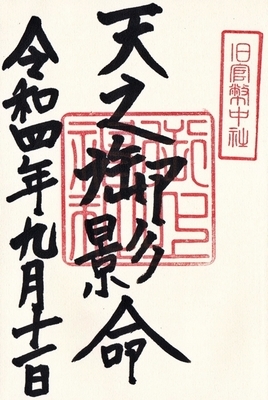 旧官幣中社
天之御影命
御上
神社
令和四年九月十一日